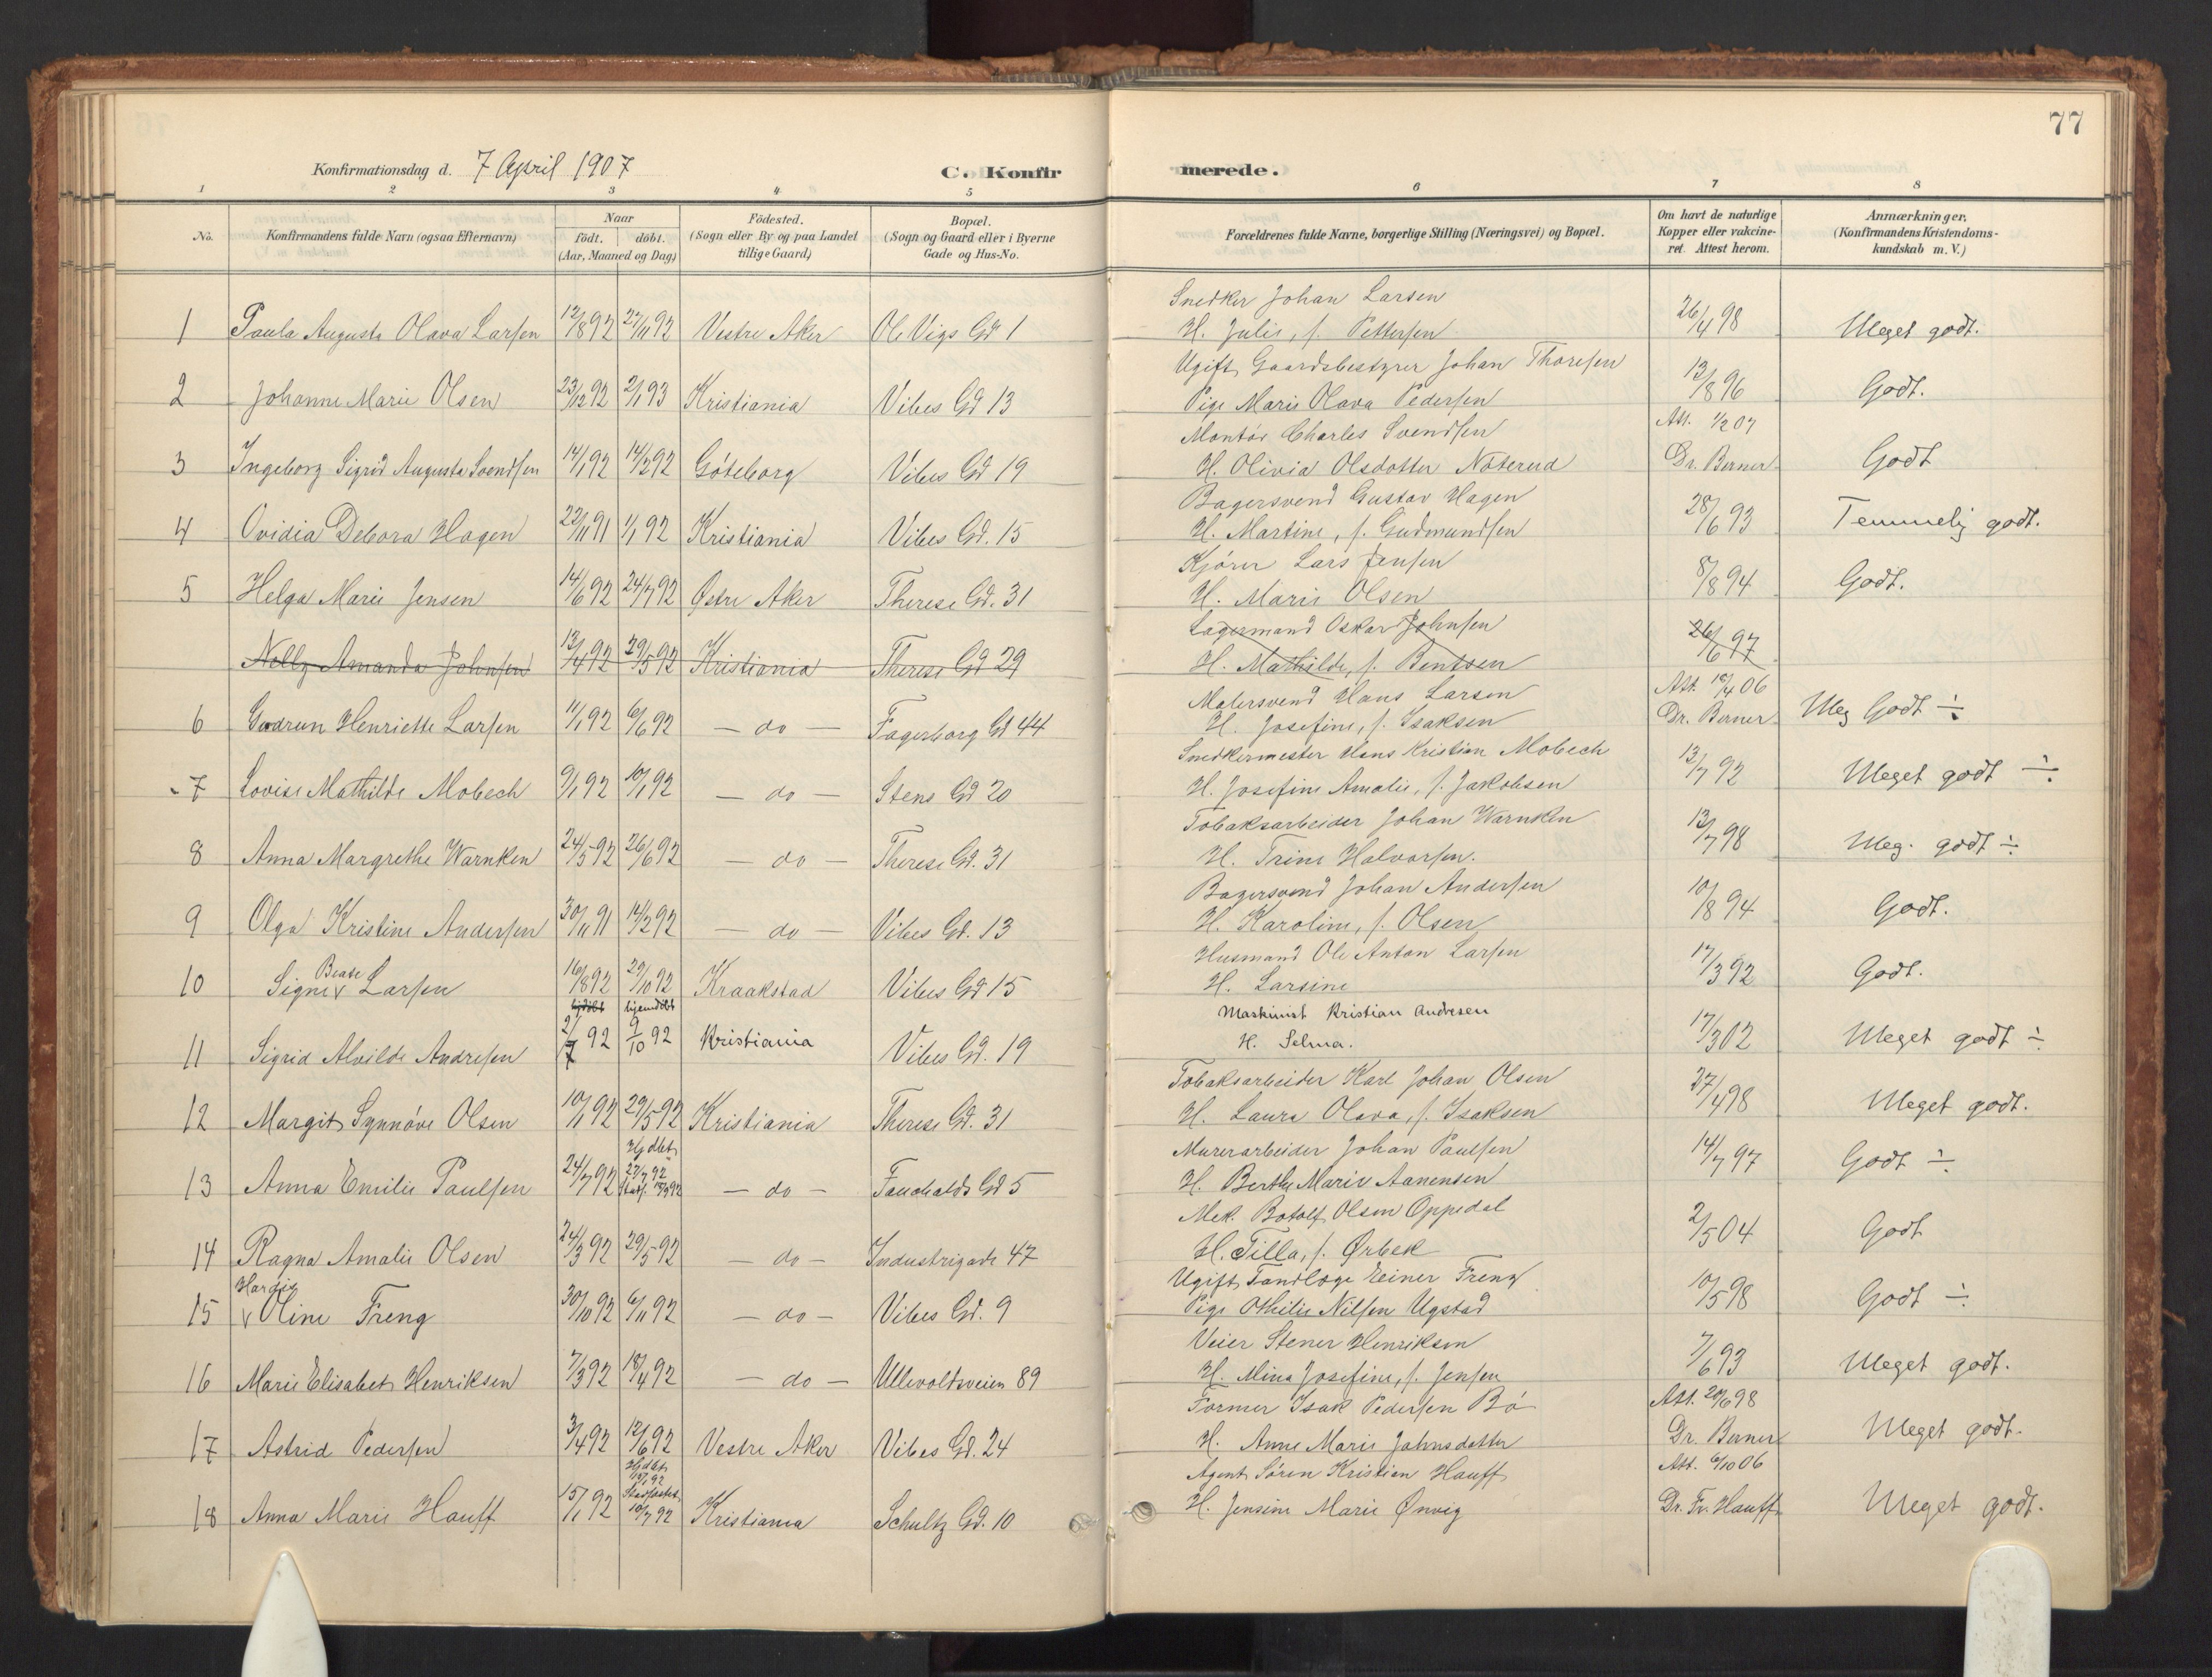 77
Konfirmationsdag d. 7 April 1907 C. Konfirmerede.
1 2 3 4 5 6 7 8
No. Konfirmandens fulde Navn (ogsaa Efternavn) Naar födt. döbt. (Aar, Maaned og Dag) Födested. (Sogn eller By og paa Landet tillige Gaard) Bopæl. (Sogn og Gaard eller i Byerne Gade og Hus-No. Forældrenes fulde Navne, borgerlige Stilling (Næringsvei) og Bopæl. Om havt de naturlige Kopper eller vakcineret. Attest herom. Anmærkninger. (Konfirmandens Kristendomskundskab m. V.)
Snedker Johan Larsen
1 Paula Augusta Olava Larsen 12/8 92 27/11 92 Vestre Aker Ole Vigs Gd 1 H. Julie, f. Pettersen 26/4 98 Meget godt.
Ugift Gaardsbestyrer Johan Thoresen
2 Johanne Marie Olsen 23/12 92 2/1 93 Kristiania Vibes Gd 13 Pige Marie Olava Pedersen 13/8 96 Godt.
Montör Charles Svendsen Att. 1/2 07
3 Ingeborg Sigrid Augusta Svendsen 14/1 92 14/2 92 Göteborg Vibes Gd 19 H. Olivia Olsdotter Noterud Dr. Berner Godt
Bagersvend Gustav Hagen
4 Ovidia Debora Hagen 22/11 91 1/1 92 Kristiania Vibes Gd. 15 H. Martine, f. Gudmundsen 28/6 93 Temmelig godt.
Kjörer Lars Jensen
5 Helga Marie Jensen 14/6 92 24/7 92 Østre Aker Therese Gd. 31 H. Marie Olsen 8/8 94 Godt.
Lagermand Oskar Johnsen
Nelly Amanda Johnsen 13/4 92 29/5 92 Kristiania Therese Gd 29 H. Mathilde, f. Bentsen 26/6 97
Malersvend Hans Larsen Att. 18/4 06
6 Gudrun Henriette Larsen 11/1 92 6/6 92 - do - Fagerborg Gd 44 H. Josefine, f. Isaksen Dr. Berner Meg Godt ÷
Snedkermester Hans Kristian Mobech
7 Lovise Mathilde Mobech 9/1 92 10/1 92 - do - Stens Gd 20 H. Josefine Amalie, f. Jakobsen 13/7 92 Meget godt ÷
Tobaksarbeider Johan Warnken
8 Anna Margrethe Warnken 24/5 92 26/6 92 - do - Therese Gd. 31 H. Trine Halvorsen. 13/7 98 Meg. godt ÷
Bagersvend Johan Andersen
9 Olga Kristine Andersen 30/11 91 14/2 92 - do - Vibes Gd. 13 H. Karoline, f. Olsen 10/8 94 Godt.
Husmand Ole Anton Larsen
10 Signe Beate Larsen 16/8 92 29/10 92 Kraakstad Vibes Gd 15 H. Larsine 17/3 92 Godt.
hjdöbt hjemdöbt Maskinist Kristian Andresen
11 Sigrid Alvilde Andresen 2/7 92 9/10 92 Kristiania Vibes Gd. 19 H. Selma. 17/3 02 Meget godt ÷
Tobaksarbeider Karl Johan Olsen
12 Margit Synnöve Olsen 10/1 92 29/5 92 Kristiania Therese Gd. 31 H. Laura Olava, f. Isaksen 27/4 98 Meget godt.
Hjdbt Murerarbeider Johan Paulsen
13 Anna Emilie Paulsen 24/7 92 27/7 92 Stadf. 18/9 92 - do - Fauchalds Gd 5 H. Berthe Marie Aanensen 14/7 97 Godt ÷
Mek. Botolf Olsen Oppedal
14 Ragna Amalie Olsen 24/3 92 29/5 92 - do - Industrigade 47 H. Tilla, f. Ørbek 2/5 04 Godt
Ugift Tandlæge Einer Freng
15 Hardis Oline Freng 30/10 92 6/11 92 - do - Vibes Gd. 9 Pige Othilie Nilsen Ugstad 10/5 98 Godt ÷
Veier Stener Henriksen
16 Marie Elisabet Henriksen 7/3 92 18/4 92 - do - Ullevoldsveien 89 H. Mina Josefine, f. Jensen 7/6 93 Meget godt.
Former Isak Pedersen Bö Att. 20/6 98
17 Astrid Pedersen 3/4 92 12/6 92 Vestre Aker Vibes Gd. 24 H. Anne Marie Johnsdatter Dr. Berner Meget godt.
Hjdbt Agent Sören Kristian Hauff Att. 6/10 06
18 Anna Marie Hauff 15/1 92 Stadfæstet 10/7 92 Kristiania Schultz Gd. 10 H. Jensine Marie Önvig Dr. Fr. Hauff Meget godt.